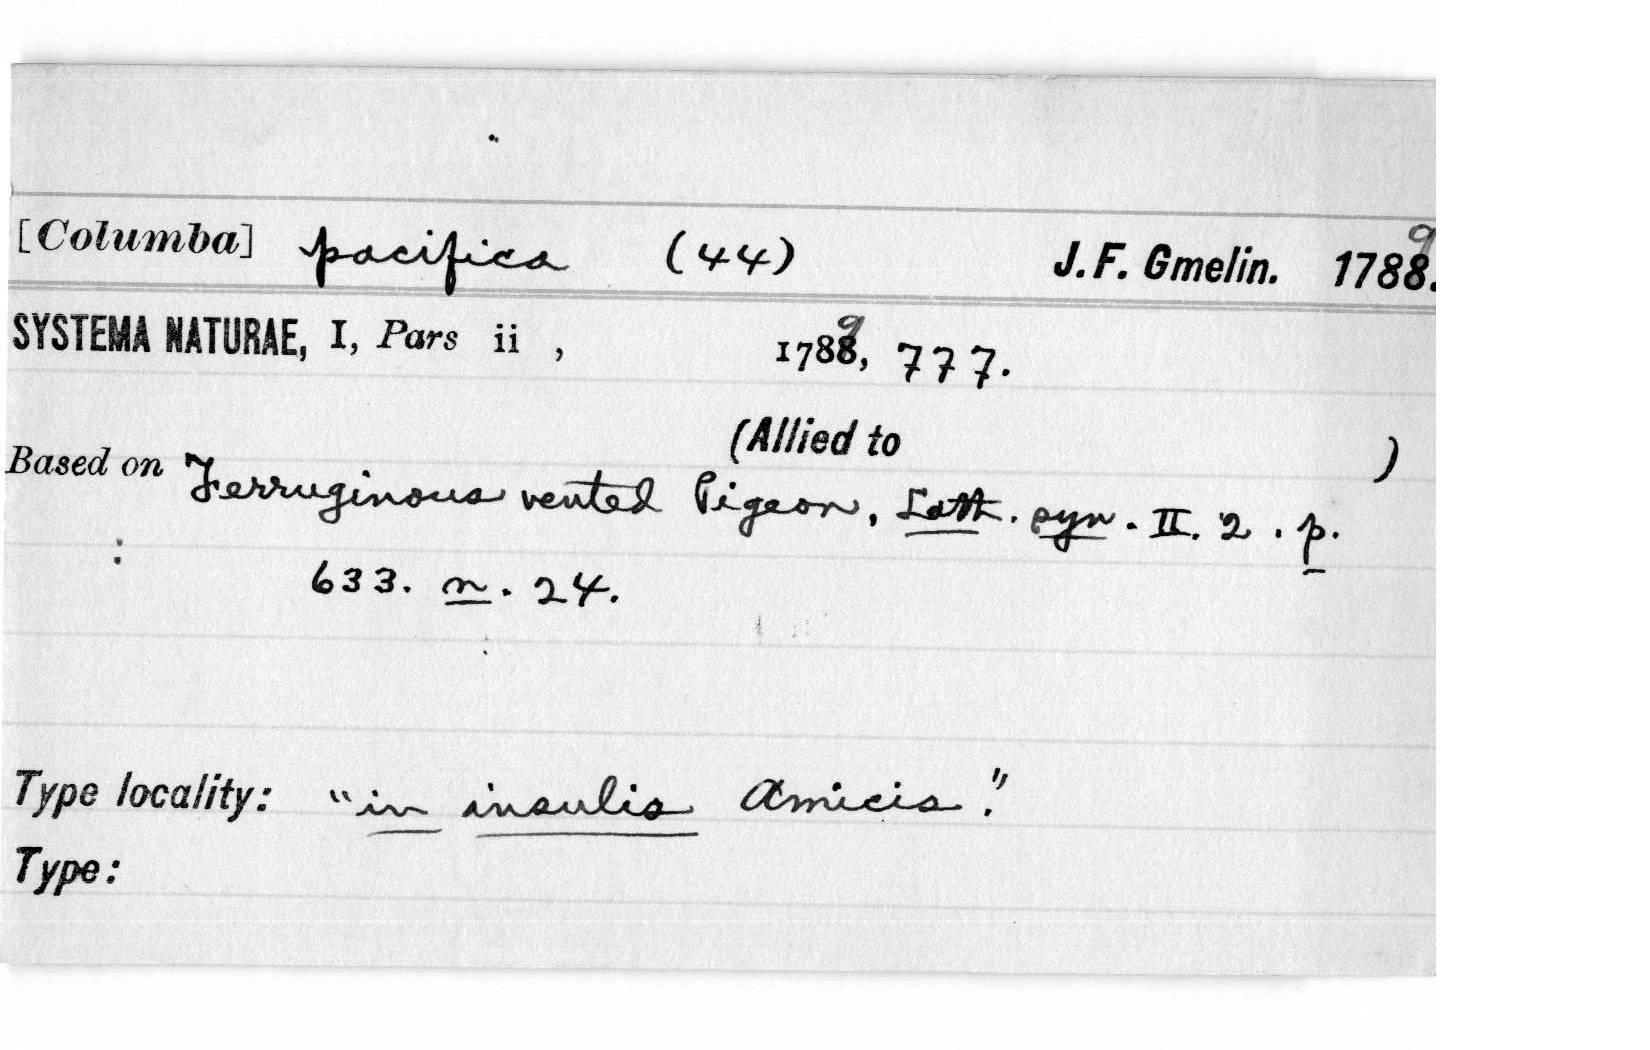 [Columba] pacifica (44) J. F. Gmelin. 1789.
SYSTEMA NATURAE, I, Pars ii , 1789, 777.
(Allied to )
Based on Ferruginous vented Pigeon, Lath. syn. II. 2. p.
: 633. n. 24.
Type locality: "in insulis Amicis."
Type: